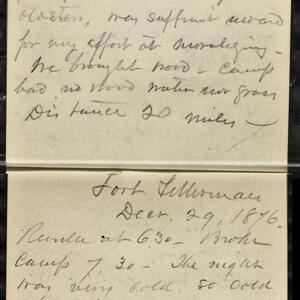 was sufficient reward
for my effort at moralizing –
We brought wood – Camp
had no wood water nor grass
Distance 20 miles –
Fort Fetterman
Decr. 29, 1876.
Reveille at 6.30 – Broke
Camp 7.30 – The night
was very cold, so cold